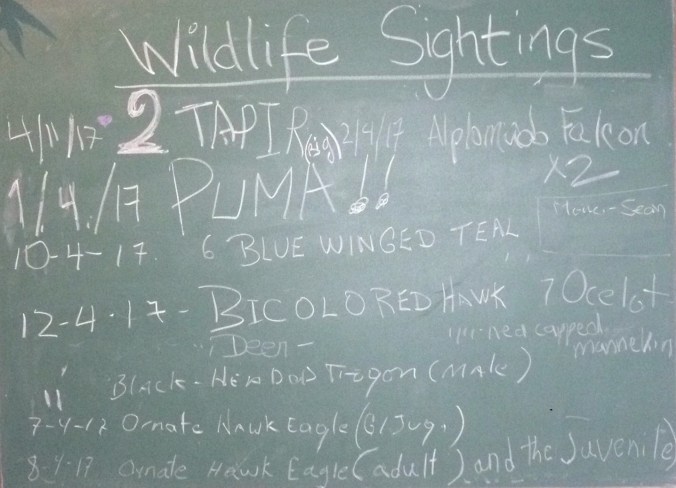 Wildlife Sightings
4/11/17 2 TAPIR (big) 2/4/17 Alplomado Falcon
X2
1/4/17 PUMA!!
10-4-17. 6 BLUE WINGED TEAL
12-4-17 - BICOLORED HAWK 7 Ocelot
capped mannekin
1 Deer -
" Black-Headed Trogon (male)
7-4-17 Ornate Hawk Eagle (G/Jug.)
8-4-17 Ornate Hawk Eagle (adult) and the Juvenile)